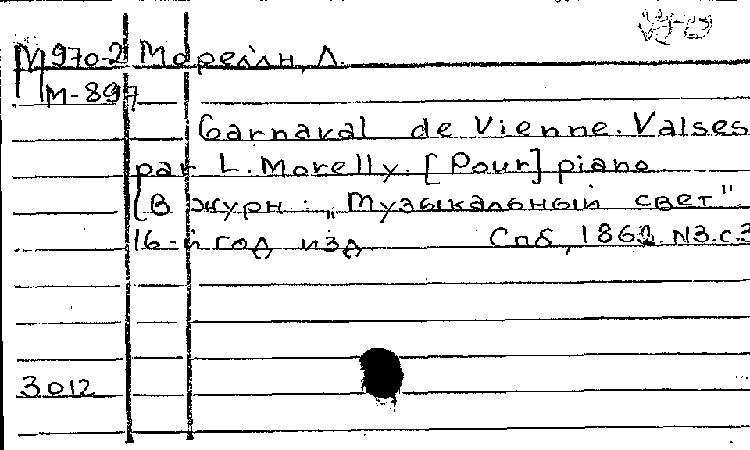 М970-2 Морелли, Л.
М-897
Carnaval de Vienne. Valses
par L. Morelly. [Pour] piano
[В журн: „Музыкальный свет"
16-й год изд Спб, 1862 N3.с.3
3012